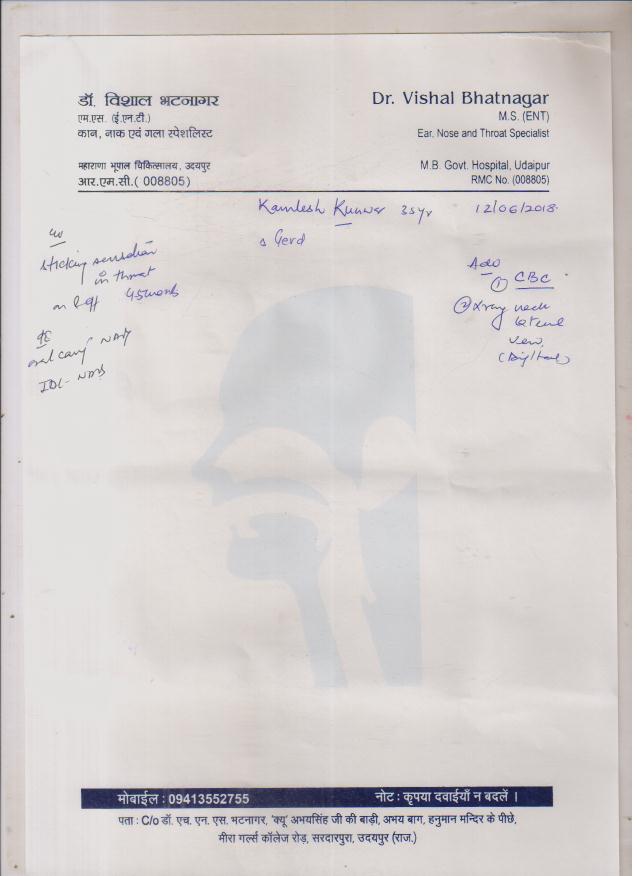 डॉ. विशाल भटनागर
एम.एस. (ई.एन.टी.)
कान, नाक एवं गला स्पेशलिस्ट
महाराणा भूपाल चिकित्सालय, उदयपुर
आर.एम.सी.( 008805)
Dr. Vishal Bhatnagar
M.S. (ENT)
Ear, Nose and Throat Specialist
M.B. Govt. Hospital, Udaipur
RMC No. (008805)
Kamlesh Kunwer 35yr 12/06/2018.
Gerd
sticking sensation
in throat
on & off
oral cavity NAD
IDL - NAD
Adv
① CBC
② Xray neck
lateral
view
(Digital)
मोबाईल : 09413552755 नोट : कृपया दवाईयाँ न बदलें ।
पता : C/o डॉ. एच. एन. एस. भटनागर, 'क्यू' अभयसिंह जी की बाड़ी, अभय बाग, हनुमान मन्दिर के पीछे,
मीरा गर्ल्स कॉलेज रोड़, सरदारपुरा, उदयपुर (राज.)